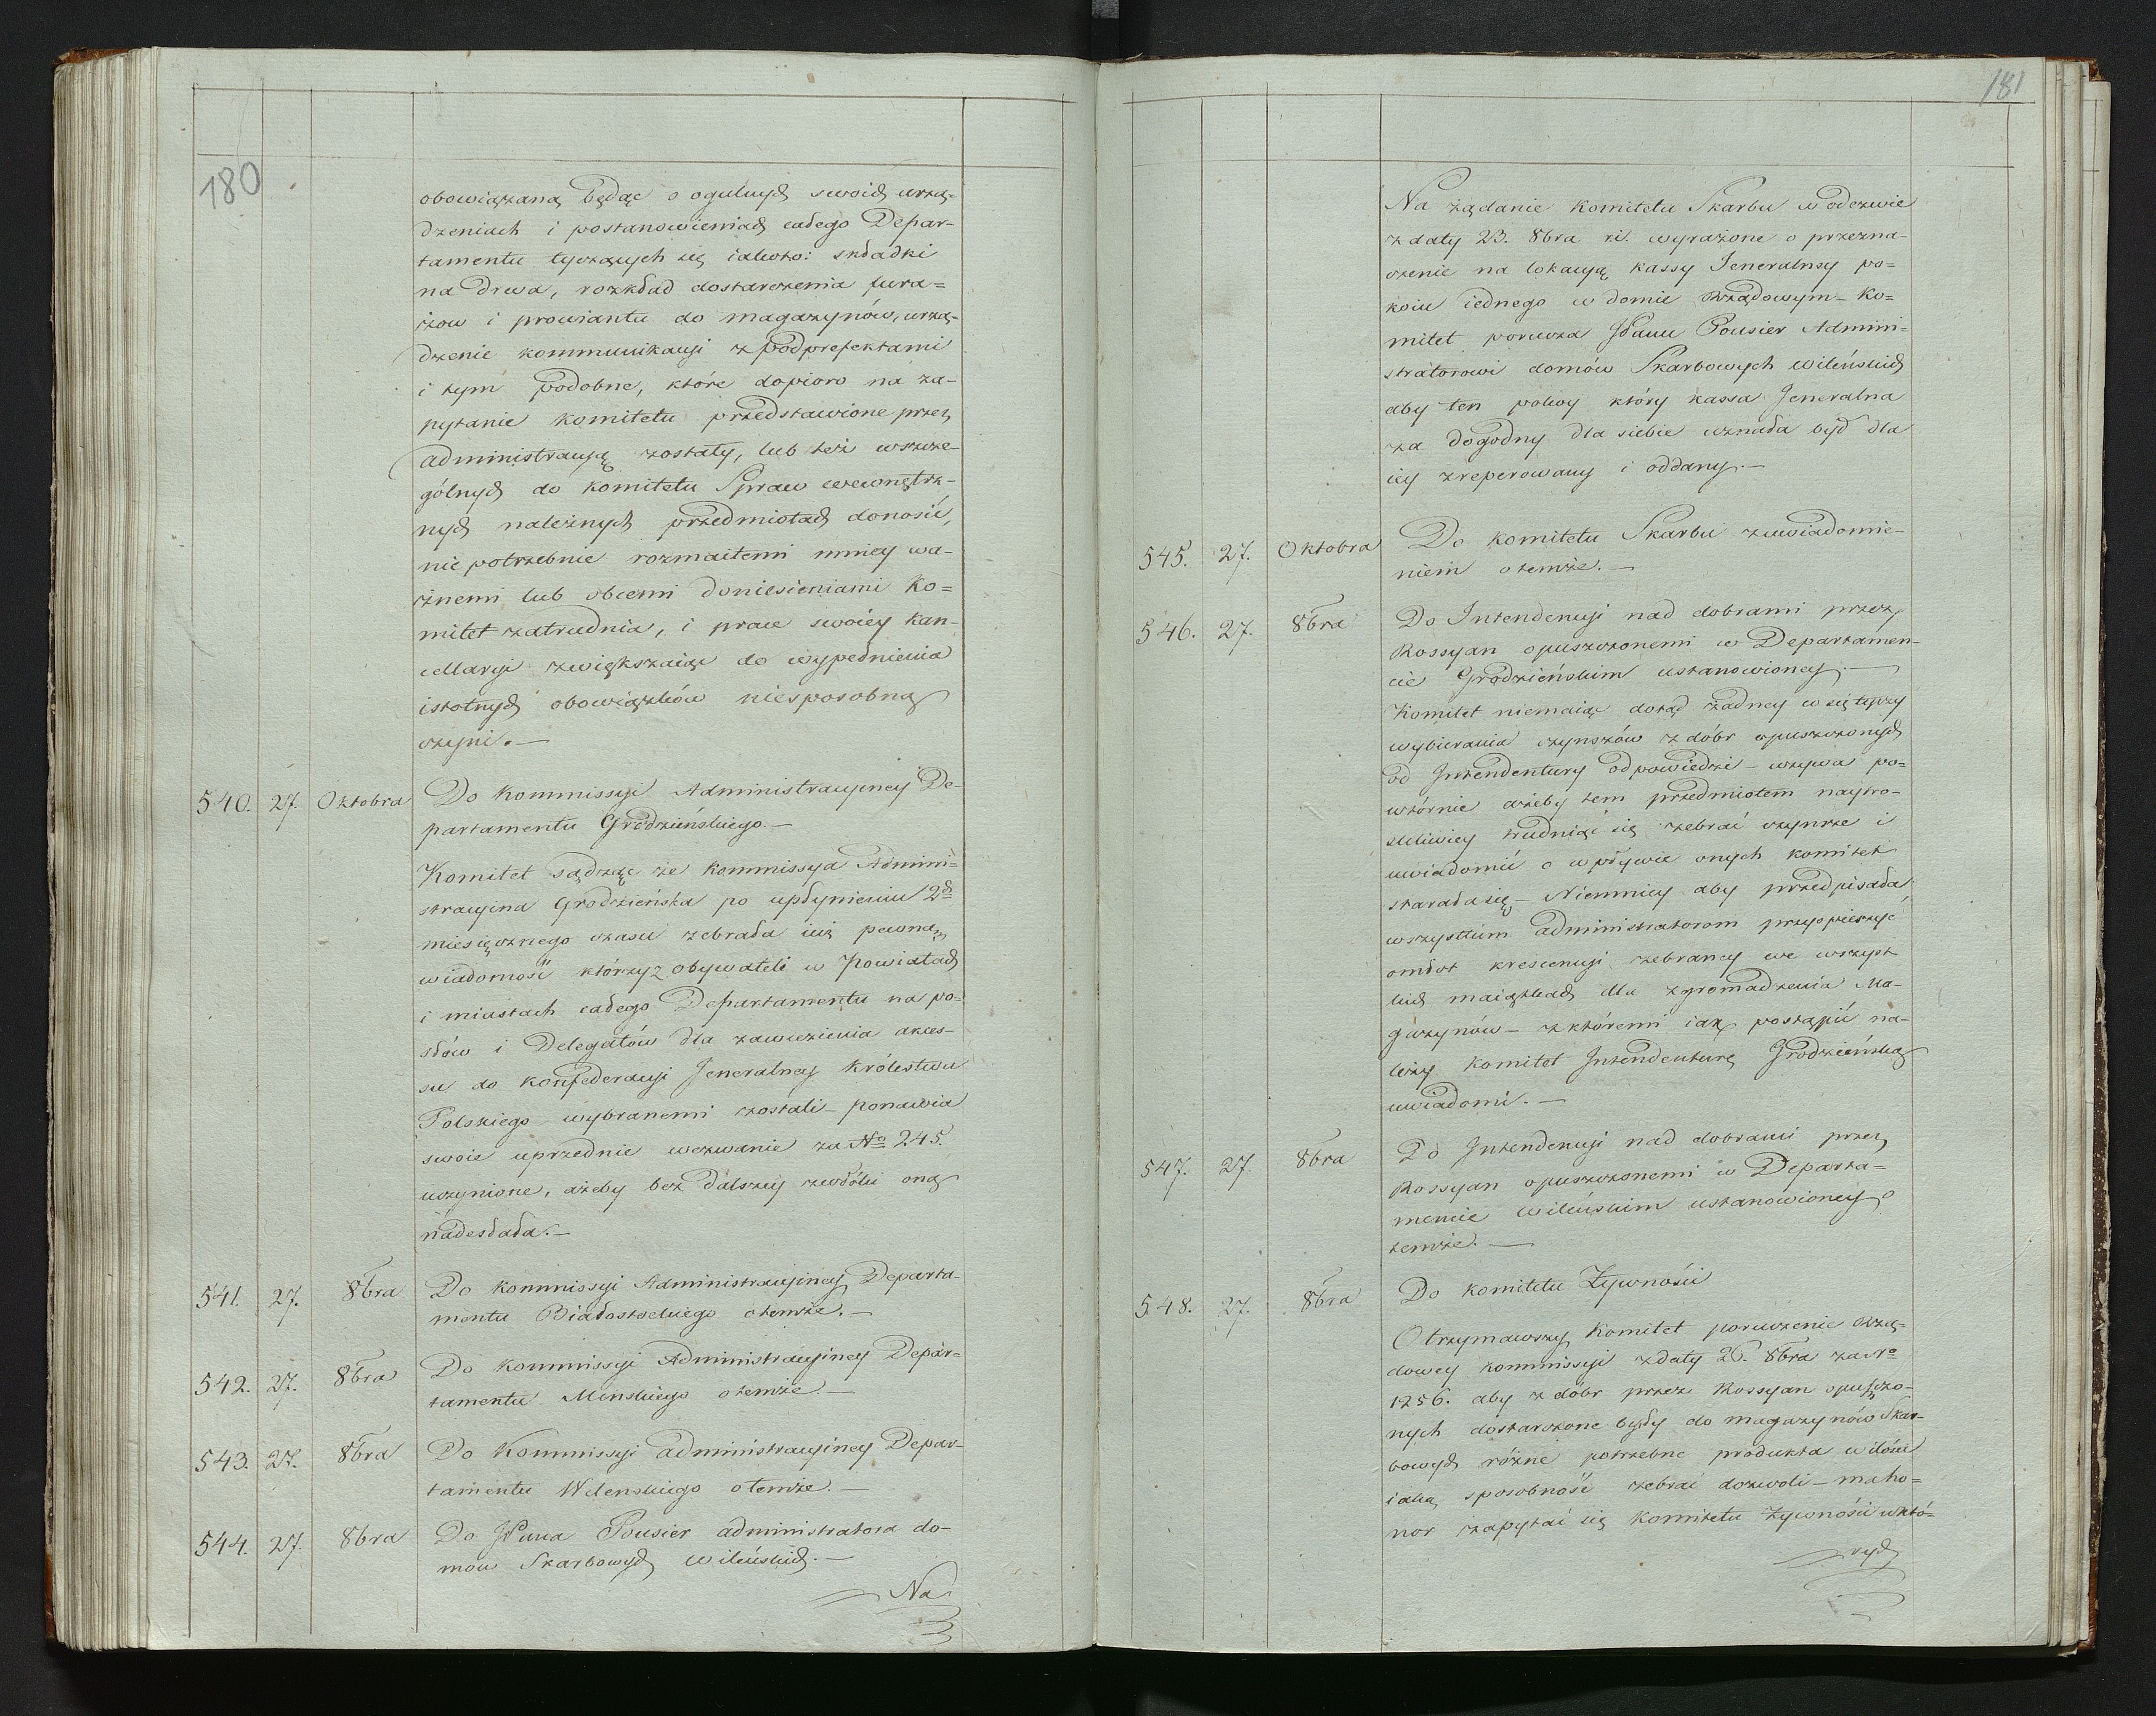 180
obowiązaną będąc o ogulnych swoich urzą=
dzeniach i postanowieniach całego Depar-
tamentu tyczących się iakoto: składki
na drwa, rozkład dostarczenia fura=
żow i prowiantu do magazynów, urzą-
dzenie kommunikacyi z podprefektami
i tym podobne, które dopioro na za-
pytanie komitetu przedstawione przez
administracyą zostały, lub też wszcze-
gólnych do komitetu Spraw wewnętrz-
nych należnych przedmiotach donosić,
niepotrzebnie rozmaitemi mniey wa-
żnemi lub obcemi doniesieniami Ko=
mitet zatrudnia, i prace swoiéy Kan-
cellaryi zwiększaiąc do wypełnienia
istotnych obowiązków niesposobną
czyni.—
540. 27. Oktobra Do Kommissyi Administracyiney De-
partamentu Grodzieńskiego.—
Komitet sądząc że Kommissya Admini=
stracyina Grodzieńska po upłynieniu 2ch
miesięcznego czasu zebrała iuż pewną
wiadomość którzy z obywateli w Powiatach
i miastach całego Departamentu na po=
słów i Delegatów dla zawiezienia akces-
su do konfederacyi Jeneralney Królestwa
Polskiego wybranemi zostali – ponawia
swoie uprzednie wezwanie za No 245.
uczynione, ażeby bez dalszéy zwłóki oną
nadesłała.—
541. 27. 8bra Do kommissyi Administracyiney Departa-
mentu Białostockiego otemże.—
542. 27. 8bra Do kommissyi Administracyiney Depar=
tamentu Minskiego otemże.—
543. 27. 8bra Do Kommissyi administracyiney Depar-
tamentu Wilenskiego otemże.—
544. 27. 8bra Do JPana Pousier administratora do-
mow Skarbowych wileńskich.—
Na
181
Na żądanie Komitetu Skarbu w odezwie
z daty 23. 8bra r.b. wyrażone o przezna-
czenie na lokacyą kassy Jeneralney po=
koiu iednego w domie Rządowym – Ko=
mitet porucza JPanu Pousier Admini=
stratorowi domów Skarbowych wileńskich
aby ten pokoy który kassa Jeneralna
za dogodny dla siebie uznała był dla
iéy zreperowany i oddany.—
545. 27. Oktobra Do komitetu Skarbu zuwiadomie-
niem otemże.—
546. 27. 8bra Do Intendencyi nad dobrami przez
Rossyan opuszczonemi w Departamen-
cie Grodzieńskim ustanowioney.—
Komitet niemaiąc dotąd żadney w się tyczy
wybierania czynszów z dóbr opuszczonych
od Intendentury odpowiedzi – wzywa po=
wtórnie ażeby tem przedmiotem naytro-
skliwiey trudniąc się zebrać czynsze i
uwiadomić o wpływie onych komitet
starała się – Niemniey aby przedpisała
wszystkim administratorom przyspieszyć
omłot krescencyi zebraney we wszyst
kich maiątkach dla zgromadzenia Ma-
gazynów – z któremi iak postąpić na-
leży Komitet Intendenturę Grodzieńską
uwiadomi.—
547. 27. 8bra Do Intendencyi nad dobrami przez
Rossyan opuszczonemi w Departa=
mencie wileńskim ustanowioney o
temże.—
548. 27. 8bra Do komitetu Żywności
Otrzymawszy Komitet poruczenie Rzą-
dowey kommissyi z daty 26. 8bra za No
1256. aby z dóbr przez Rossyan opuszczo-
nych dostarczone były do magazynów Skar-
bowych różne potrzebne produkta w ilości
iaką sposobność zebrać dozwoli – ma ho=
nor zapytać się Komitetu Żywności w któ=
rych